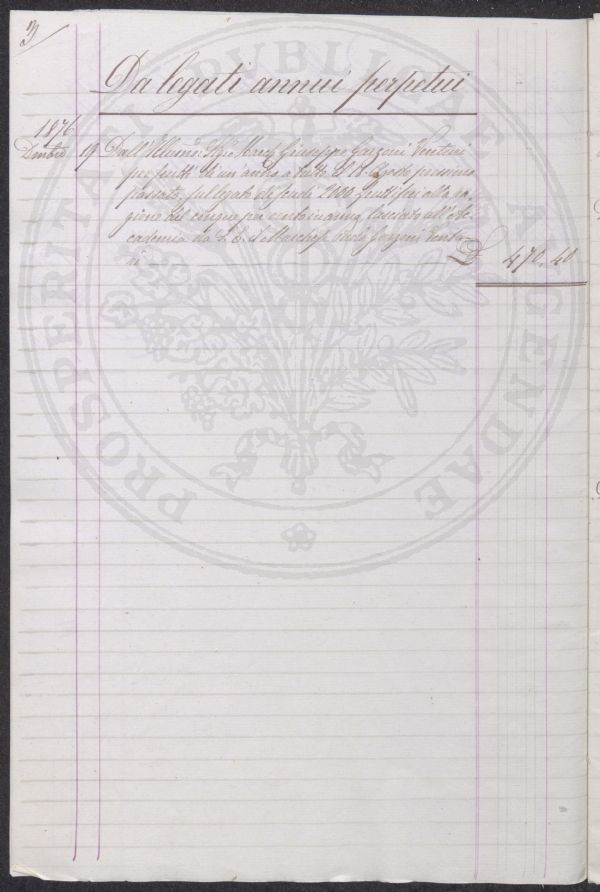 3
Da legati annui perpetui
1876
Dmbre 19 Dall' Illmo. Sigr. March. Giuseppe Garzoni Venturi
per frutti di un anno a tutto il dì Agosto prossimo
passato, sul legato di scudi 2000 fruttiferi alla ra-
gione del cinque per cento in annuo, lasciato all' Ac-
cademia da S. E. il Marchese Garzoni Ventu-
ri £ 470. 40
PROSPERITATI PUBLICAE AUGENDAE